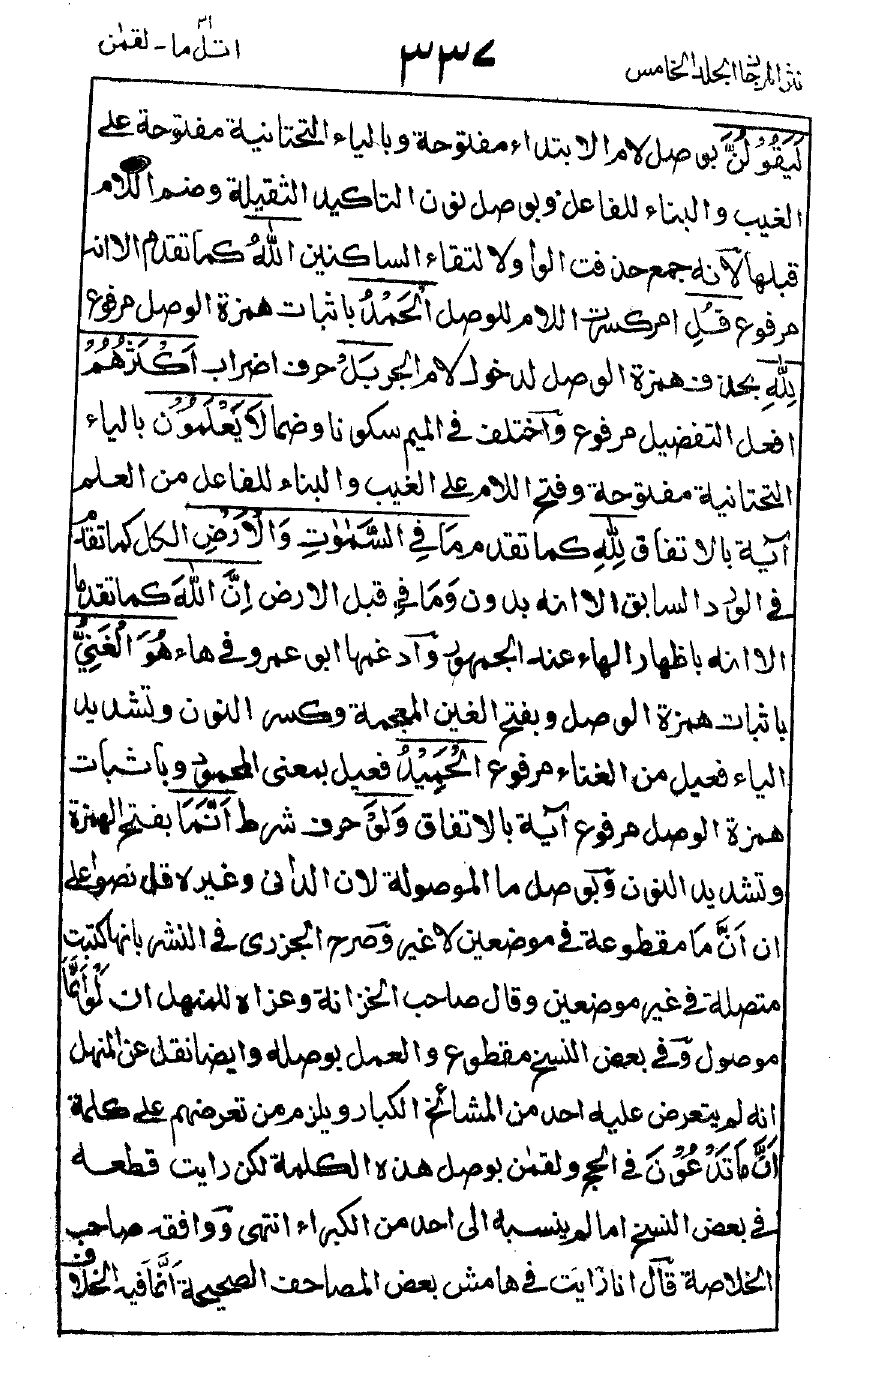 نثر المرجان المجلد الخامس
٣٣٧
اتل ما - لقمٰن ٣١
لَيَقُوْلُنَّ بوصل لام الابتداء مفتوحة وبالياء التحتانية مفتوحة على
الغيب والبناء للفاعل وبوصل نون التاكيد الثقيلة وضم اللام
قبلها لآنه جمع حذفت الواو لالتقاء الساكنين اللّٰهُ كما تقدم الا انه
مرفوع قُلِ امر كسرت اللام للوصل اَلْحَمْدُ باثبات همزة الوصل مرفوع
لِلّٰهِ بحذف همزة الوصل لدخول لام الجر بَلْ حرف اضراب اَكْثَرُهُمُ
افعل التفضيل مرفوع وآختلف في الميم سكونا وضما لَا يَعْلَمُوْنَ بالياء
التحتانية مفتوحة وفتح اللام على الغيب والبناء للفاعل من العلم
آية بالاتفاق لِلّٰهِ كما تقدم مَا فِي السَّمٰوٰتِ وَالْاَرْضِ الكل كما تقدم
في الورد السابق الا انه بدون وَمَا فِي قبل الارض اِنَّ اللّٰهَ كما تقدما
الا انه باظهار الهاء عند الجمهور وآدغمها ابو عمرو في هاء هُوَ الْغَنِيُّ
باثبات همزة الوصل وبفتح الغين المعجمة وكسر النون وتشديد
الياء فعيل من الغناء مرفوع الْحَمِيْدُ فعيل بمعنى المحمود وباثبات
همزة الوصل مرفوع آية بالاتفاق وَلَوْ حرف شرط اَنَّمَا بفتح الهمزة
وتشديد النون وبوصل ما الموصولة لان الداني وغيره قد نصوا على
ان اَنَّ مَا مقطوعة في موضعين لا غير وصرح الجزري في النشر بانها كتبت
متصلة في غير موضعين وقال صاحب الخزانة وعزاه للمنهل ان لَوْ اَنَّمَا
موصول وفي بعض النسخ مقطوع والعمل بوصله وايضا نقل عن المنهل
انه لم يتعرض عليه احد من المشائخ الكبار ويلزم من تعرضهم على كلمة
اَنَّ مَا تَدْعُوْنَ في الحج ولقمٰن بوصل هذه الكلمة لكن رايت قطعه
في بعض النسخ اما لم ينسبه الى احد من الكبراء انتهى ووافقه صاحب
الخلاصة قآل انا رايت في هامش بعض المصاحف الصحيحة اَنَّمَا فيه الخلاف